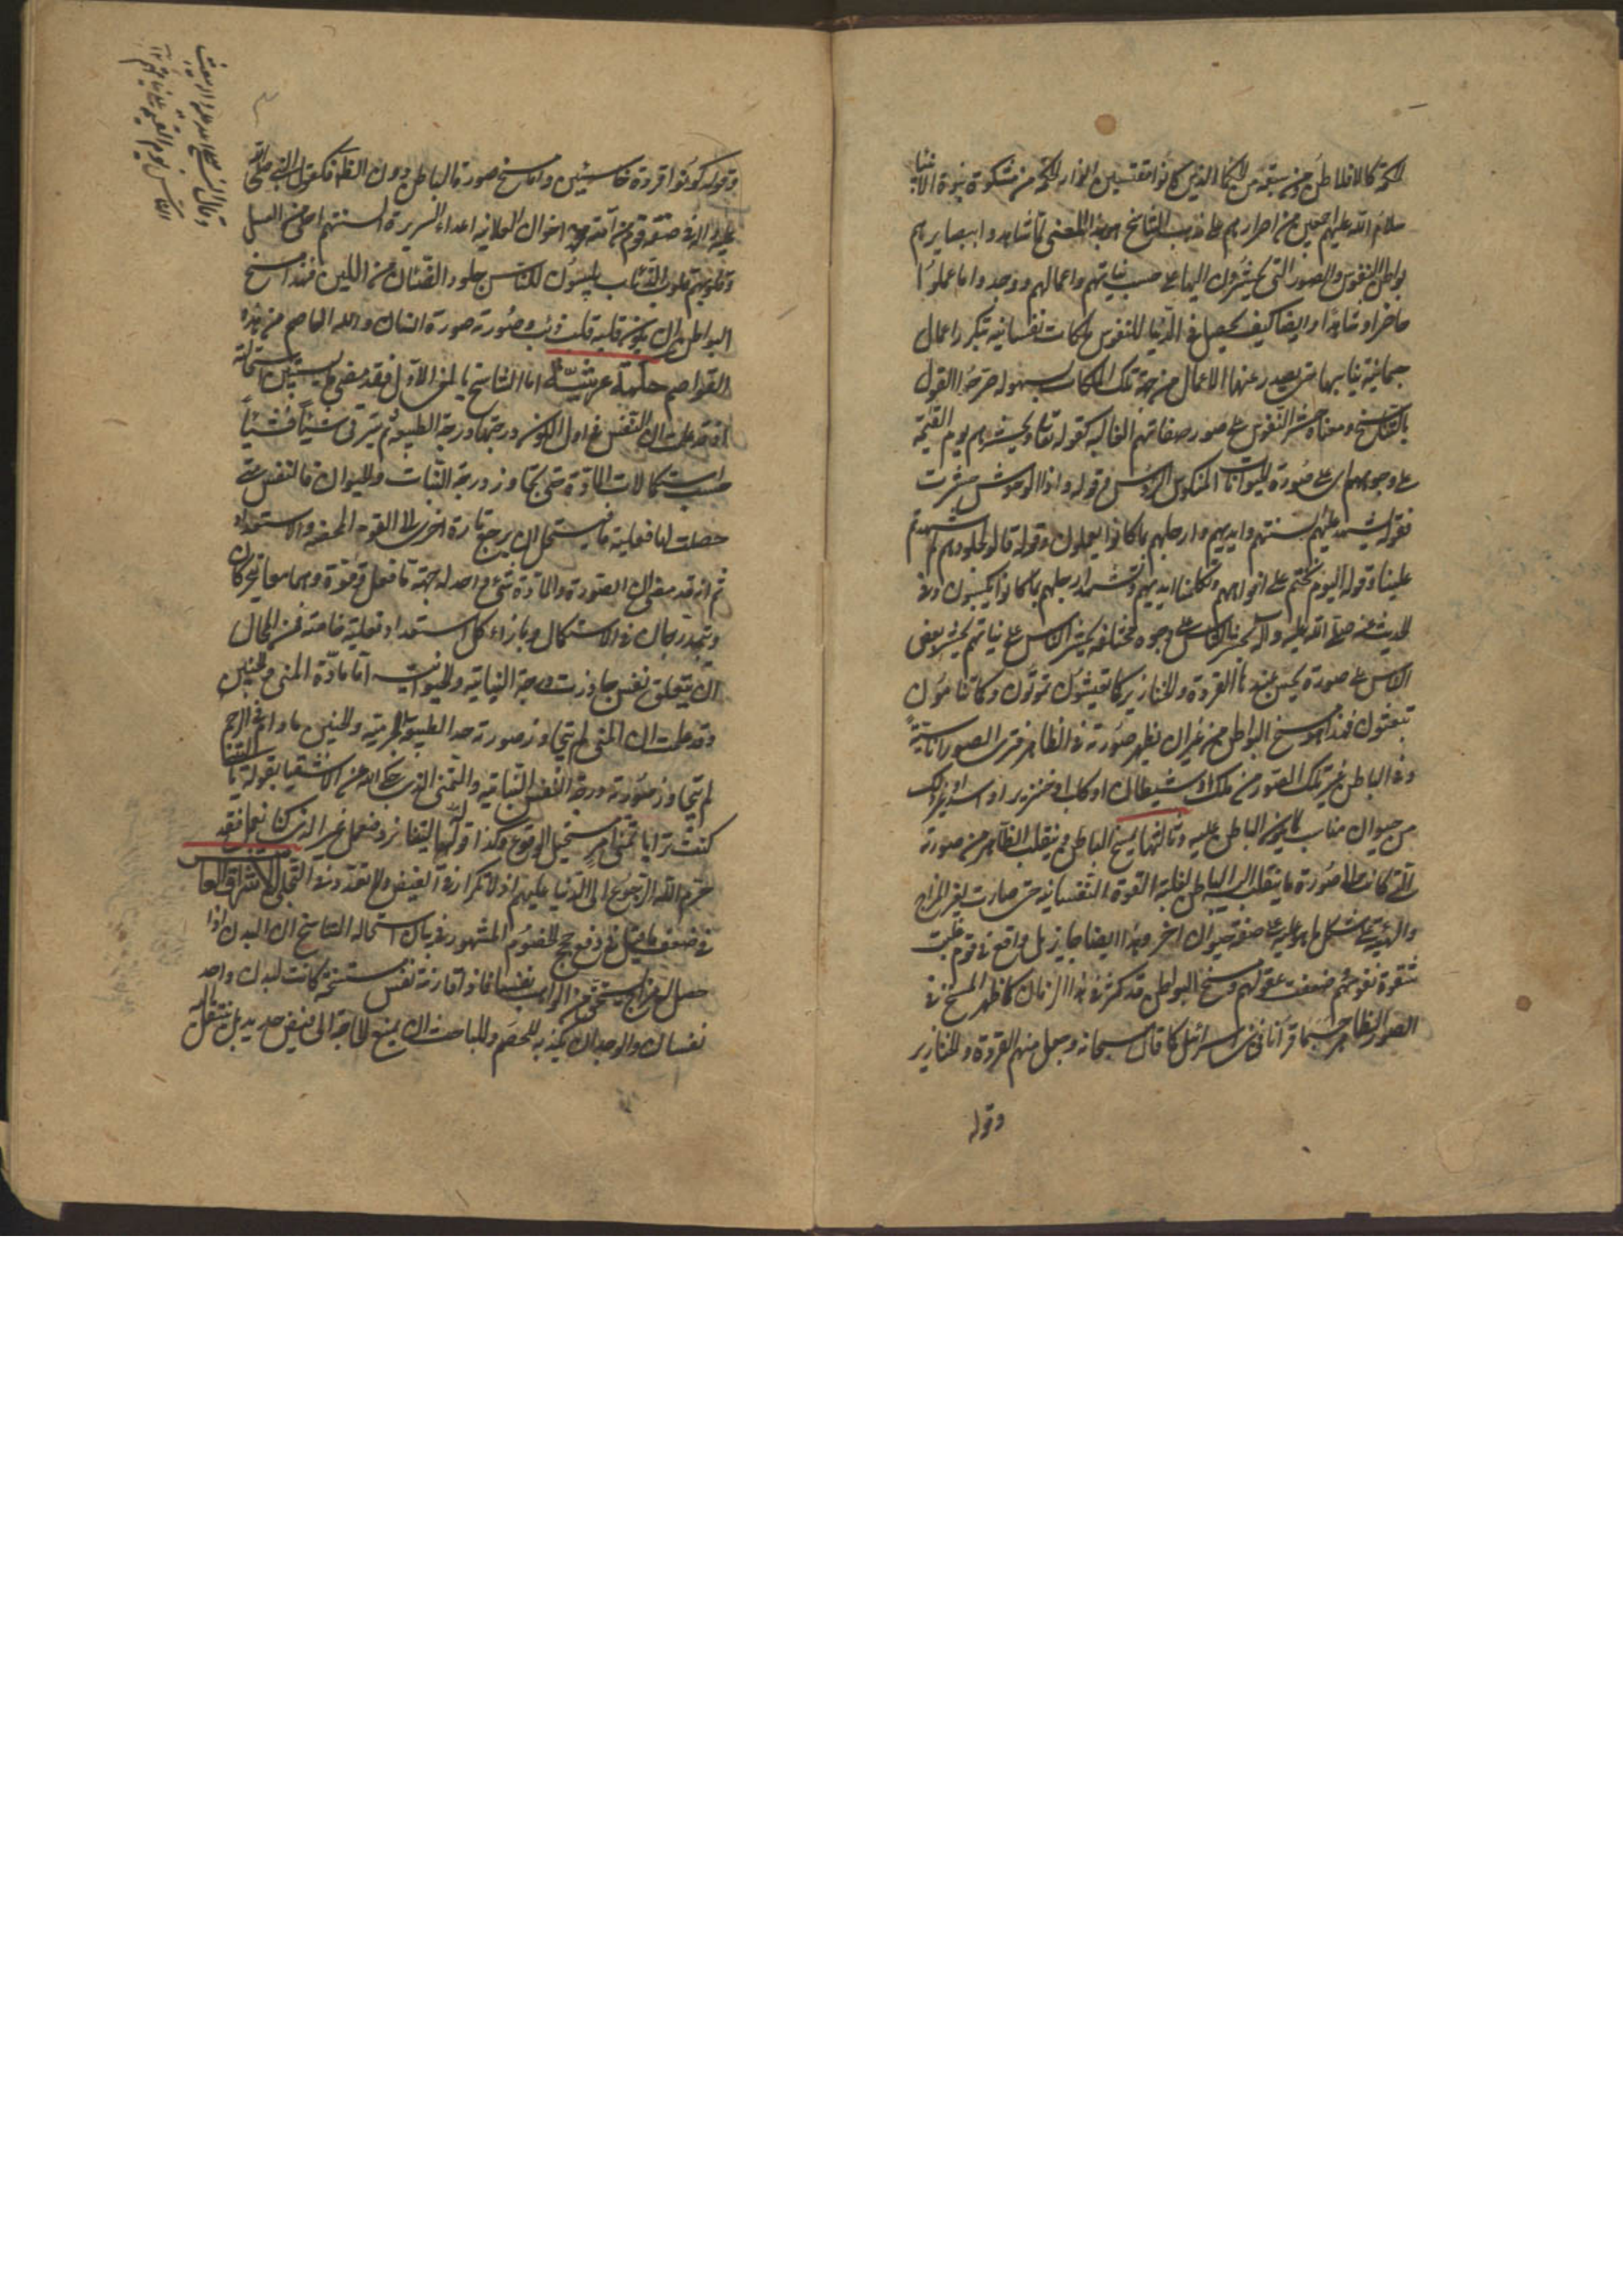 الحكمة كالافلاطن ومن سبقه من الحكما الذين كانوا مقتبسين انوار الحكمة من مشكوة نبوة الانبيا
سلام الله عليهم اجمعين من اصرارهم على مذهب التناسخ هو بهذا المعنى لما شاهدوا ببصايرهم
بواطن النفوس والصور التى يحشرون اليها على حسب نياتهم واعمالهم ووجدوا ما عملوا
حاضرا وشاهدوا ايضا كيف يحصل فى الدنيا للنفوس ملكات نفسانيه بتكرر اعمال
جسمانية يناسبها حتى يصدر عنها الاعمال من جهة تلك الملكات بسهوله صرحوا القول
بالتناسخ ومعناه حشر النفوس على صور صفاتهم الغالبه كقوله تعالى ونحشرهم يوم القيمة
على وجوههم اى على صورة الحيوانات المنكوس الرؤس وقوله واذا الوحوش حشرت
فقوله تشهد عليهم السنتهم وايديهم وارجلهم بما كانوا يعملون وقوله قالوا لجلودهم لم شهدتم
علينا وقوله اليوم نختم على افواههم وتكلمنا ايديهم وتشهد ارجلهم بما كانوا يكسبون وفى
الحديث عنه صلى الله عليه وآله يحشر الناس على وجوه مختلفه يحشر الناس على نياتهم يحشر بعض
الناس على صورة يحسن عندها القردة والخنازير كما تعيشون تموتون وكما تنامون
تبعثون فهذا هو مسخ البواطن من غير ان يظهر صورته فى الظاهر فترى الصور اناسية
وفى الباطن غير تلك الصور من ملك او شيطان او كلب او خنزير او اسد او غير ذلك
من حيوان مناسب لما يكون الباطن عليه وثالثها ما يمسخ الباطن وينقلب الظاهر من صورته
التى كانت الى صورة ما ينقلب اليه الباطن لغلبة القوة النفسانيه حتى صارت يغير المزاج
والهيئة على شكل ما هو عليه على صفة حيوان اخر وهذا ايضا جايز بل واقع فى قوم غلبت
شقوة نفوسهم ضعفت عقولهم ومسخ البواطن قد كثر فى هذا الزمان كما ظهر المسخ فى
الصور الظاهر حسبما قرانا فى بنى اسرائيل كما قال سبحانه وجعل منهم القردة والخنازير
وقوله
وقوله كونوا قردة خاسئين واما مسخ صورة الباطن دون الظاهر فكقول النبى صلى الله
عليه وآله فى صفة قوم من امته اخوان العلانيه اعداء السريرة السنتهم احلى من العسل
وقلوبهم قلوب الذئاب يلبسون للناس جلود الضئان من اللين فهذا مسخ
البواطن ان يكون قلبه قلب ذئب وصورته صورة انسان والله العاصم من هذه
القواصم حكمة عرشية اما التناسخ بالمعنى الاول فقد مضى استحالته
اذ قد علمت ان النفس فى اول الكون درجتها درجة الطبيعة ثم تترقى شيئا فشيئا
حسب استكمالات المادة حتى يتجاوز درجة النبات والحيوان فالنفس متى
حصلت لها فعلية ما يستحيل ان يرجع تارة اخرى الى القوه المحضه والاستعداد
ثم انه قد مضى ان الصورة والمادة شئ واحد له جهتا فعل وقوة وهما معا يتحركان
ويتدرجان فى الاستكمال وبازاء كل استعداد فعلية خاصة فمن المحال
ان يتعلق نفس جاوزت درجة النباتيه والحيوانيه الى مادة المنى والجنين
وقد علمت ان المنى لم يتجاوز صورته حد الطبيعة الجرمية والجنين ما دام فى الرحم
لم يتجاوز صورته درجة النفس النباتيه والتمنى الذى حكى الله عن الاشقيا بقوله يا ليتنا
كنت ترابا تمنى امر مستحيل الوقوع وكذا قولهم يا ليتنا نرد فنعمل غير الذى كنا نعمل فقد
حرم الله الرجوع الى الدنيا عليهم اذ لا تكرار فى الفيض ولا تعدد فى التجلى الاشراق
فى ضعف ما قيل فى دفع حجج الخصوم المشهور فى بيان استحاله التناسخ ان البدن اذا
حصل له مزاج يستحق من الواهب نفسا فاذا قارنته نفس مستنسخة كانت لبدن واحد
نفسان والوجدان يكذبه للخصم والمباحث ان يمنع الحاجة الى فيض جديد بل ينتقل
وقال النبى صلى الله عليه وآله يبعث
الناس يوم القيمة على نياتهم